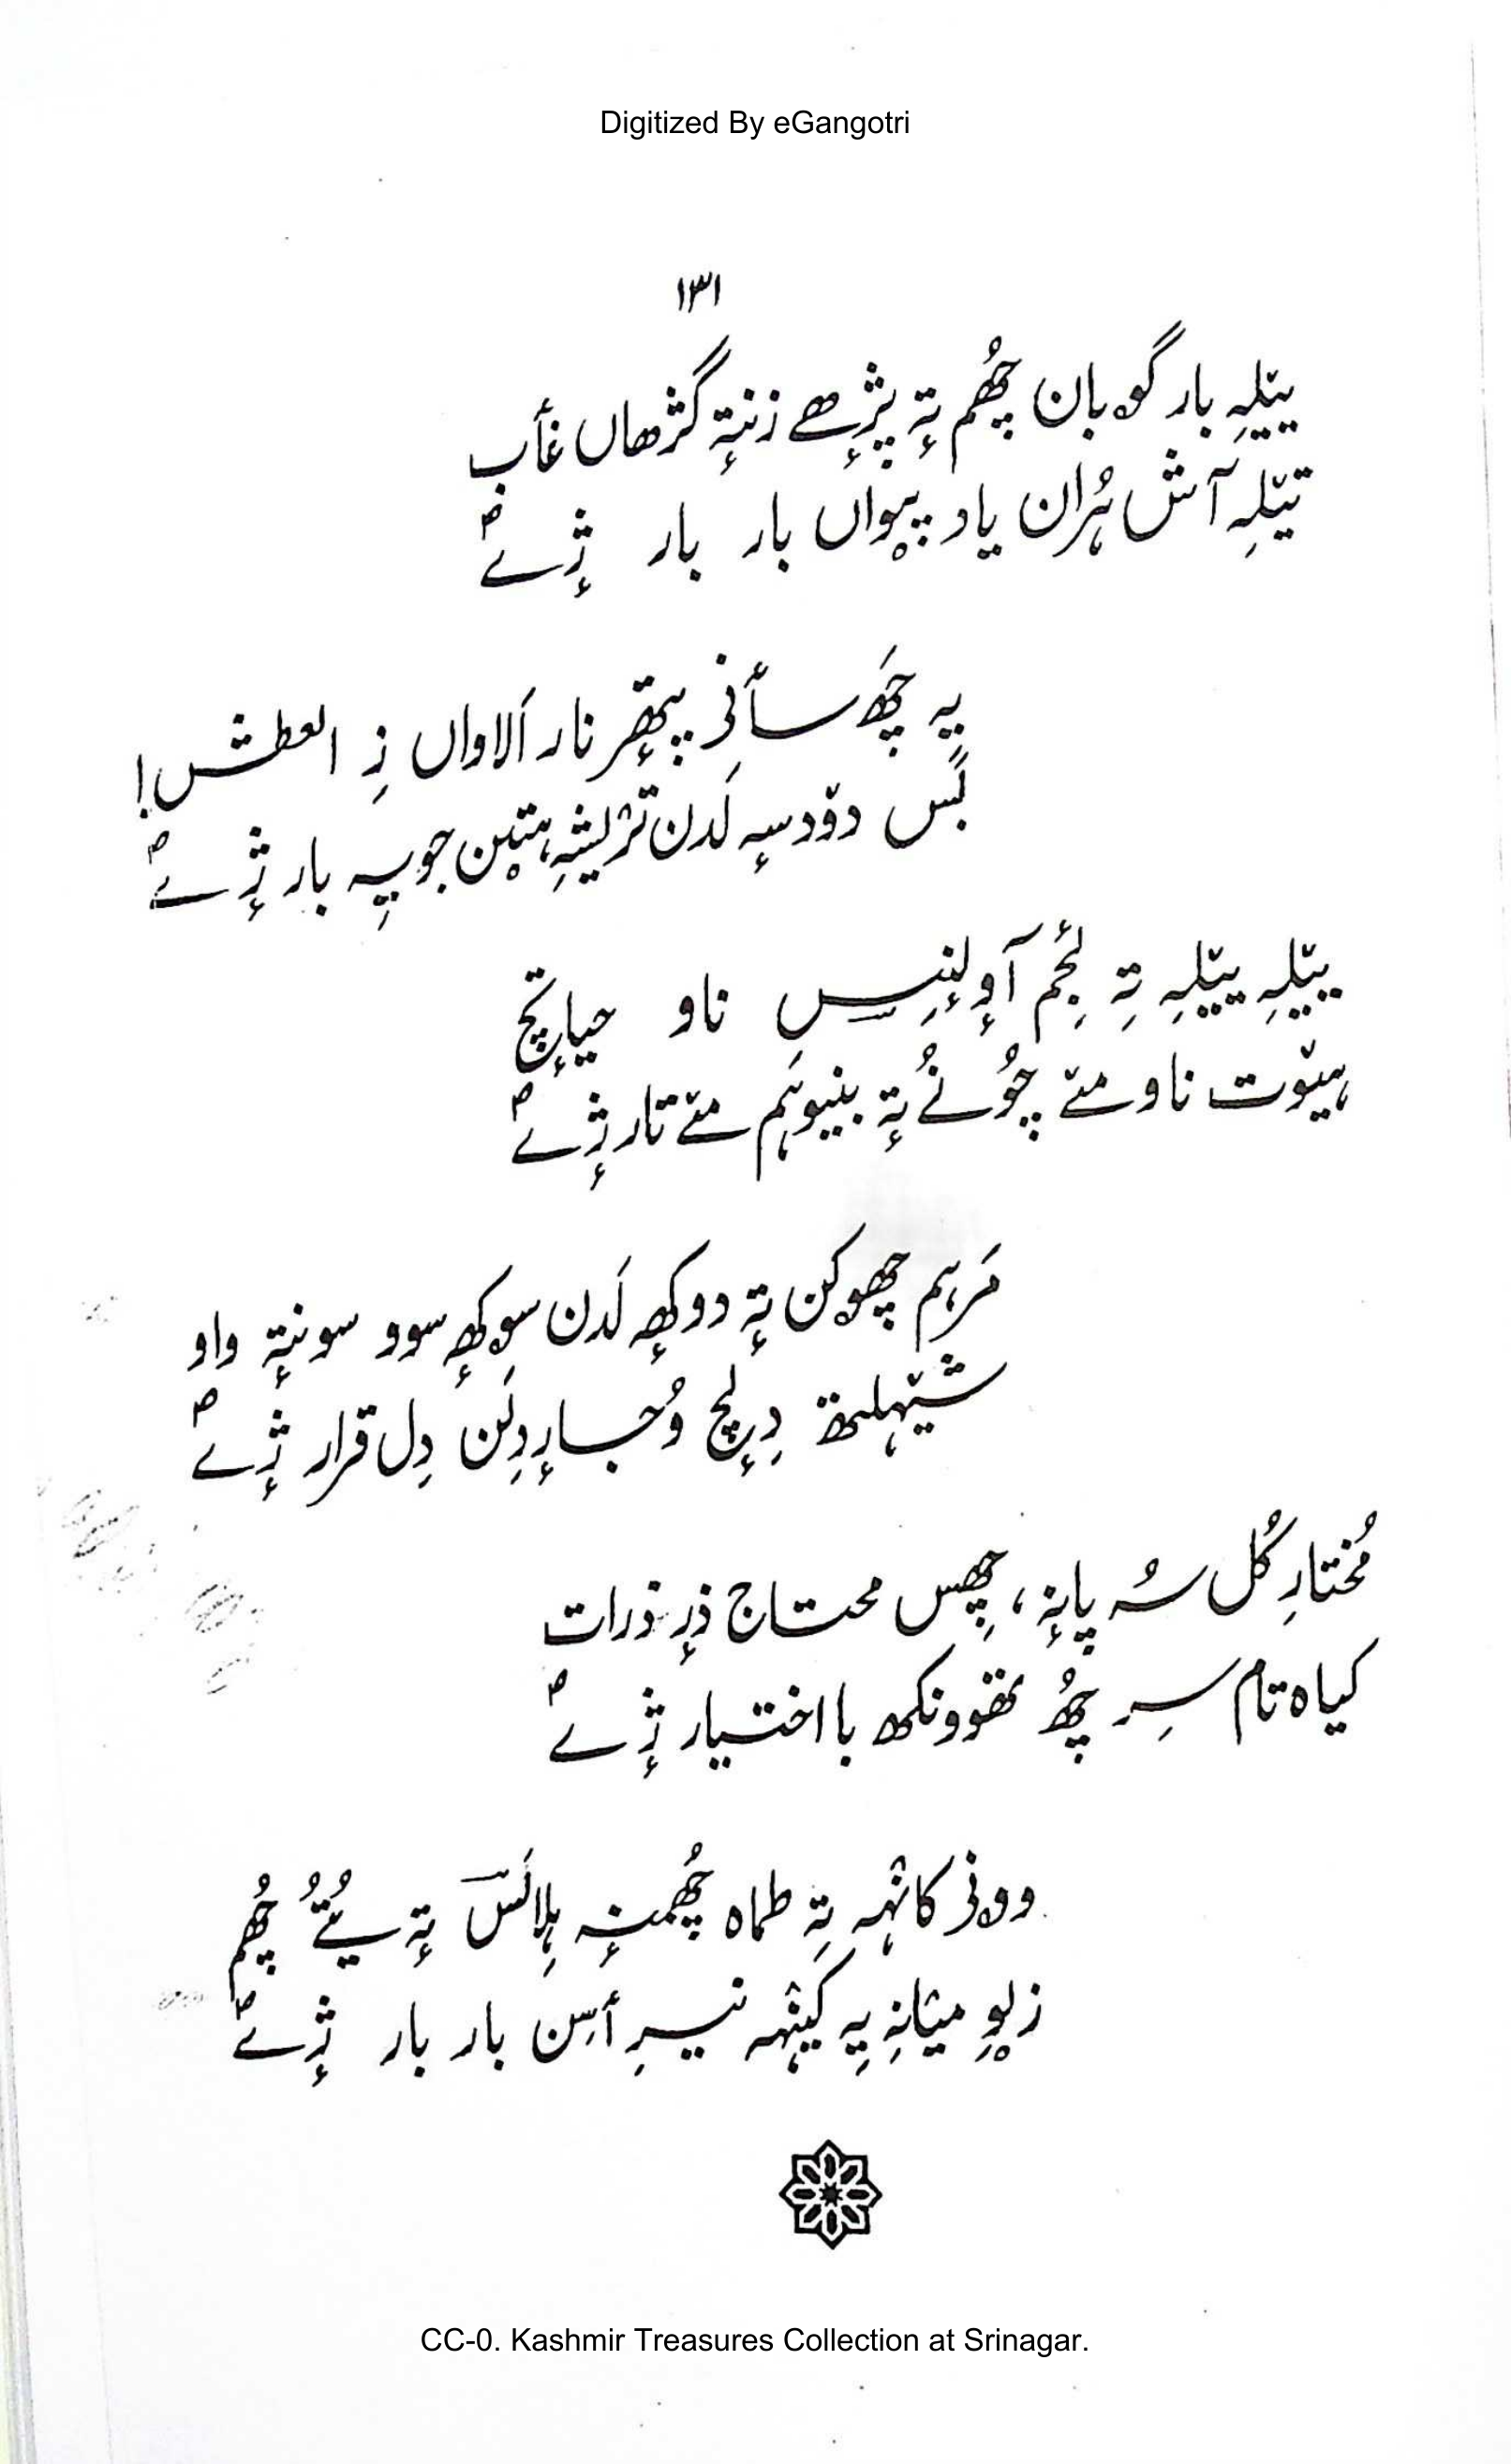 Digitized By eGangotri
۱۳۱
ییٚلہِ بار گوبان چھُم تہٕ پژٕھے زنتہٕ گژھاں غٲب
تیٚلہِ آش ہُران یاد پیوٚاں بار بار ژٕے ؐ
یہ چھَ سٲنی پٕتھر نار اَلاواں زِ العطش!
بَس دوٚد سہٕ لَدن تریشہِ ہتیٚن جوپہِ بار ژٕے ؐ
ییٚلہِ ییٚلہِ تہِ لٔجِم آوٕلنِس ناو حیاتٕچ
ہیوٚت ناو مےٚ چوُنے تہٕ بنیوہَم مےٚ تار ژٕے ؐ
مَرہم چھوکن تہٕ دوکھٕ لَدن سوکھٕ سوو سونتہٕ واو
شیٚہلتھ دِلٕچ وُجارٕ دِلَن دِل قرار ژٕے ؐ
مُختارِ کُل سُہ پانہٕ، چھِس محتاج ذرٕ ذرات
کیاہ تام سِر چھُ تھووٚنکھ با اختیار ژٕے ؐ
وونی کانٛہہ تہِ طماہ چھُمنہٕ ہِلالَسؔ تہٕ یُتُے چھُم
زٕلوِ میٛانہِ یہِ کینٛہہ نیرِ اٲسِن بار بار ژٕے ؐ
CC-0. Kashmir Treasures Collection at Srinagar.